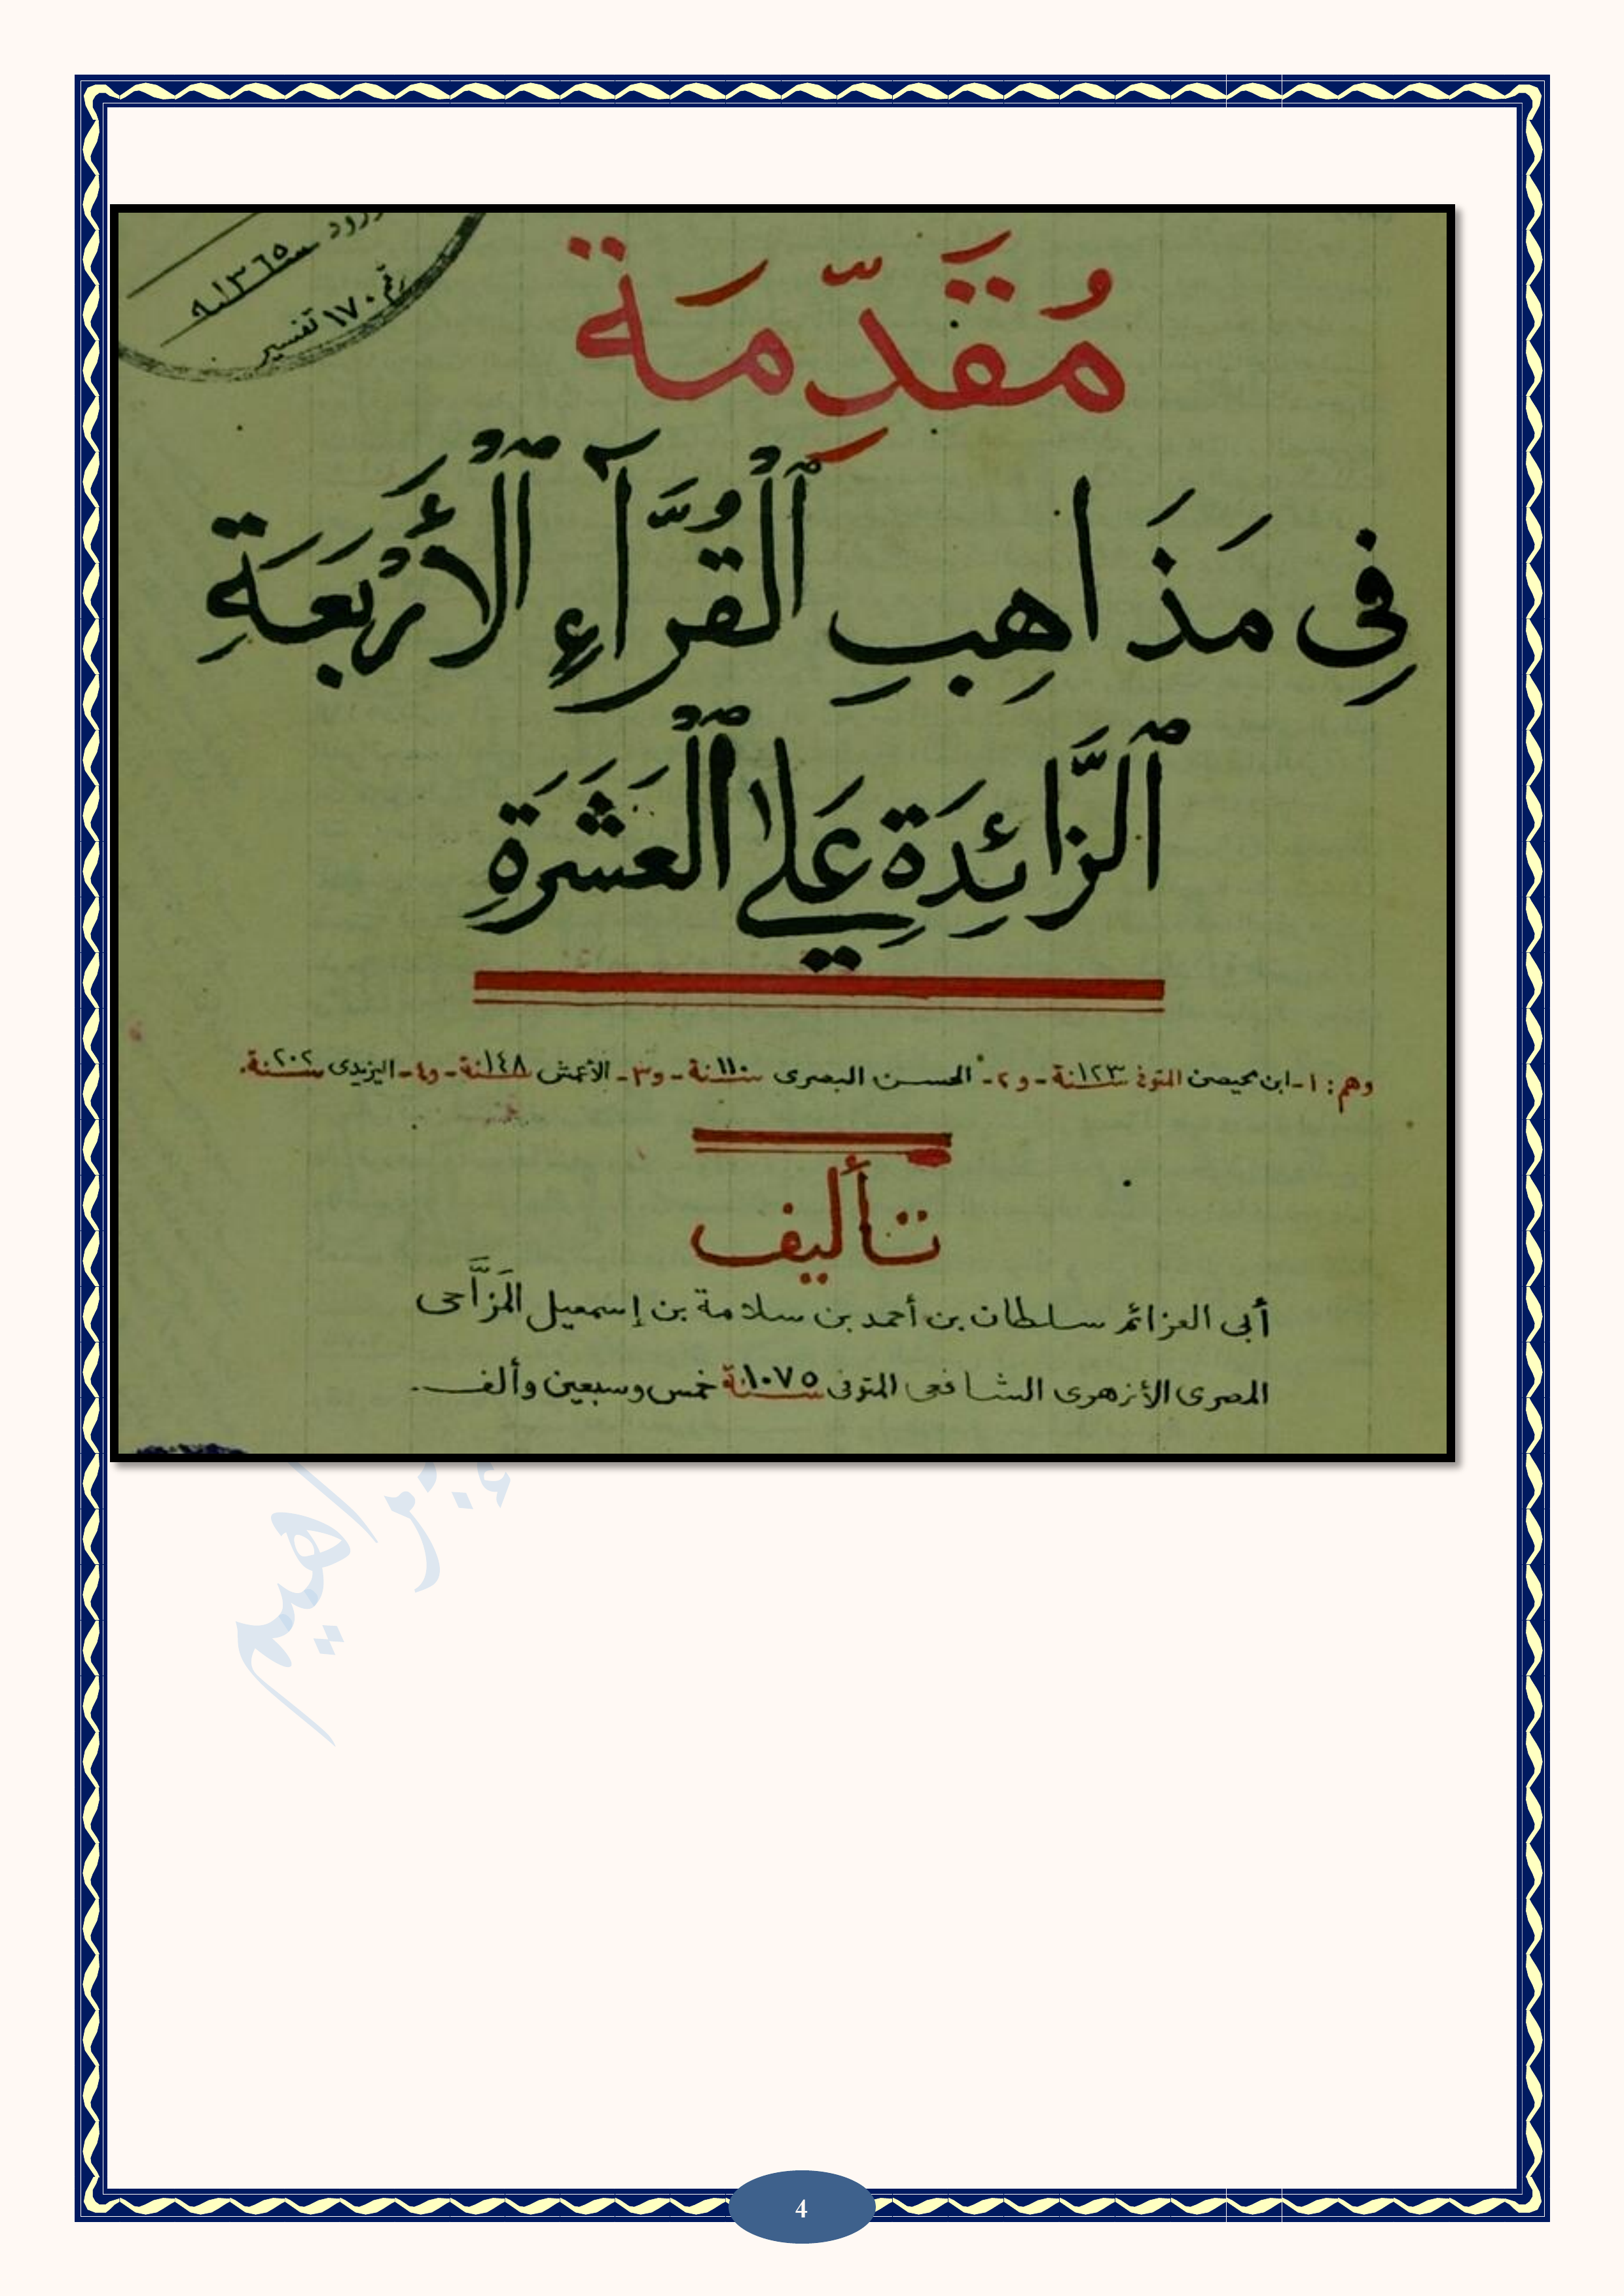 ورود
١٣٦٥هـ
رقم ١٧٠ تفسير
مُقَدِّمَة
فِى مَذَاهِبِ ٱلْقُرَّآءِ ٱلْأَرْبَعَةِ
ٱلزَّائِدَةِ عَلَى ٱلْعَشَرَةِ
وهم: ١- ابن محيصن المتوفى سنة ١٢٣ - و٢- الحسن البصرى سنة ١١٠ - و٣- الأعمش سنة ١٤٨ - و٤- اليزيدى سنة ٢٠٢.
تأليف
أبى العزائم سلطان بن أحمد بن سلامة بن إسمعيل المَزَّاحى
المصرى الأزهرى الشافعى المتوفى سنة ١٠٧٥ خمس وسبعين وألف.
إبراهيم
4